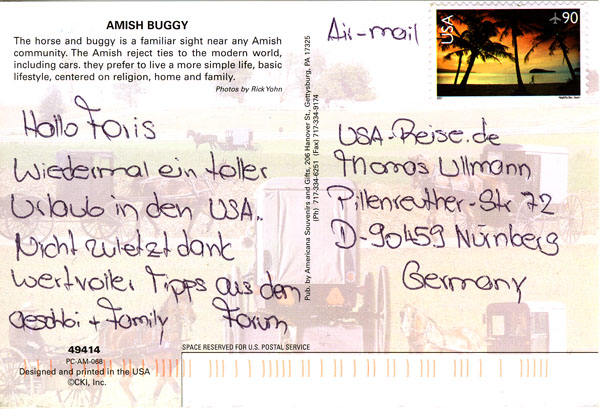 AMISH BUGGY
The horse and buggy is a familiar sight near any Amish
community. The Amish reject ties to the modern world,
including cars. they prefer to live a more simple life, basic
lifestyle, centered on religion, home and family.
Photos by Rick Yohn
Hallo Foris
Wiedermal ein toller
Urlaub in den USA..
Nicht zuletzt dank
wertvoller Tipps aus dem
aeschbi + Family Forum
49414
PC-AM-068
Designed and printed in the USA
©CKI, Inc.
Pub. by Americana Souvenirs and Gifts, 206 Hanover St., Gettysburg, PA 17325
(Ph) 717-334-6251 (Fax) 717-334-9174
Air-mail
USA
90
USA-Reise.de
Thomas Ullmann
Pillenreuther-Str 72
D-90459 Nürnberg
Germany
SPACE RESERVED FOR U.S. POSTAL SERVICE